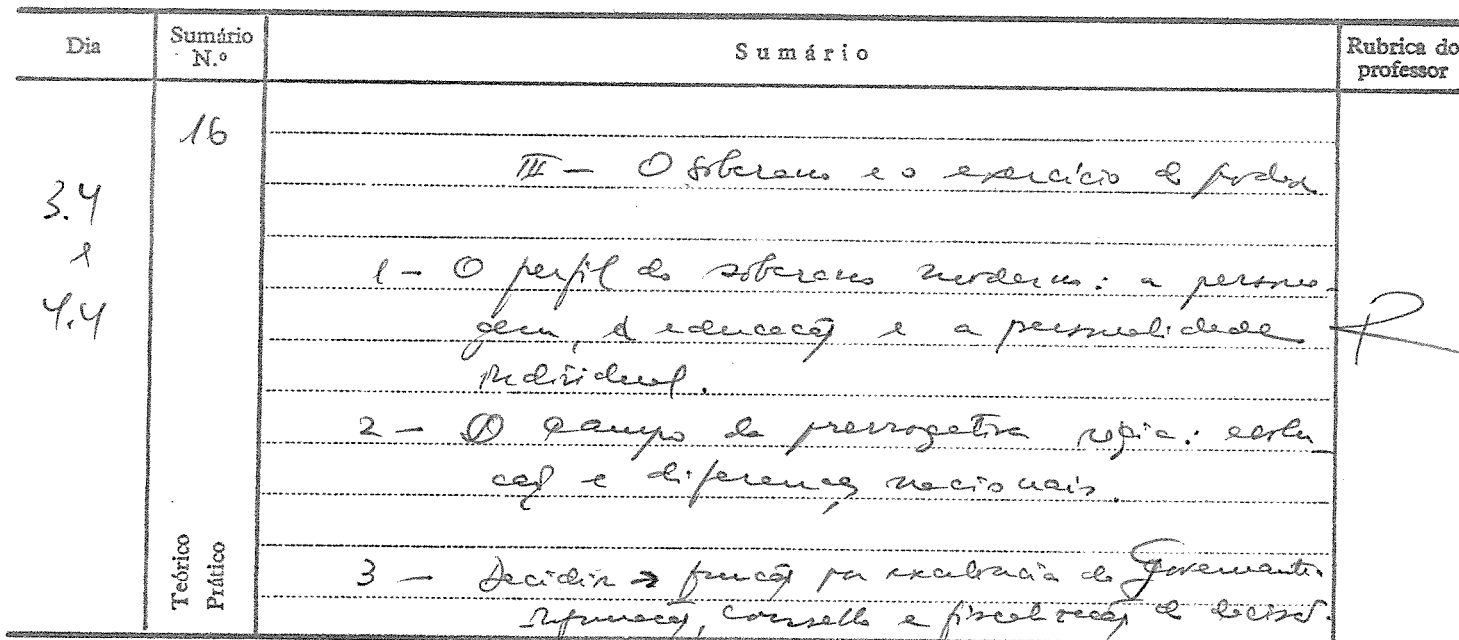 Dia
Sumário N.º
Sumário
Rubrica do professor
16
3.4
e
4.4
III - O soberano e o exercício do poder
1 - O perfil do soberano moderno: a persona-
gem, a educação e a personalidade
individual.
2 - O campo da prerrogativa régia: evolu-
ção e diferenças nacionais.
3 - Decidir → função por excelência do Governante.
Informação, conselho e fiscalização da decisão.
Teórico
Prático